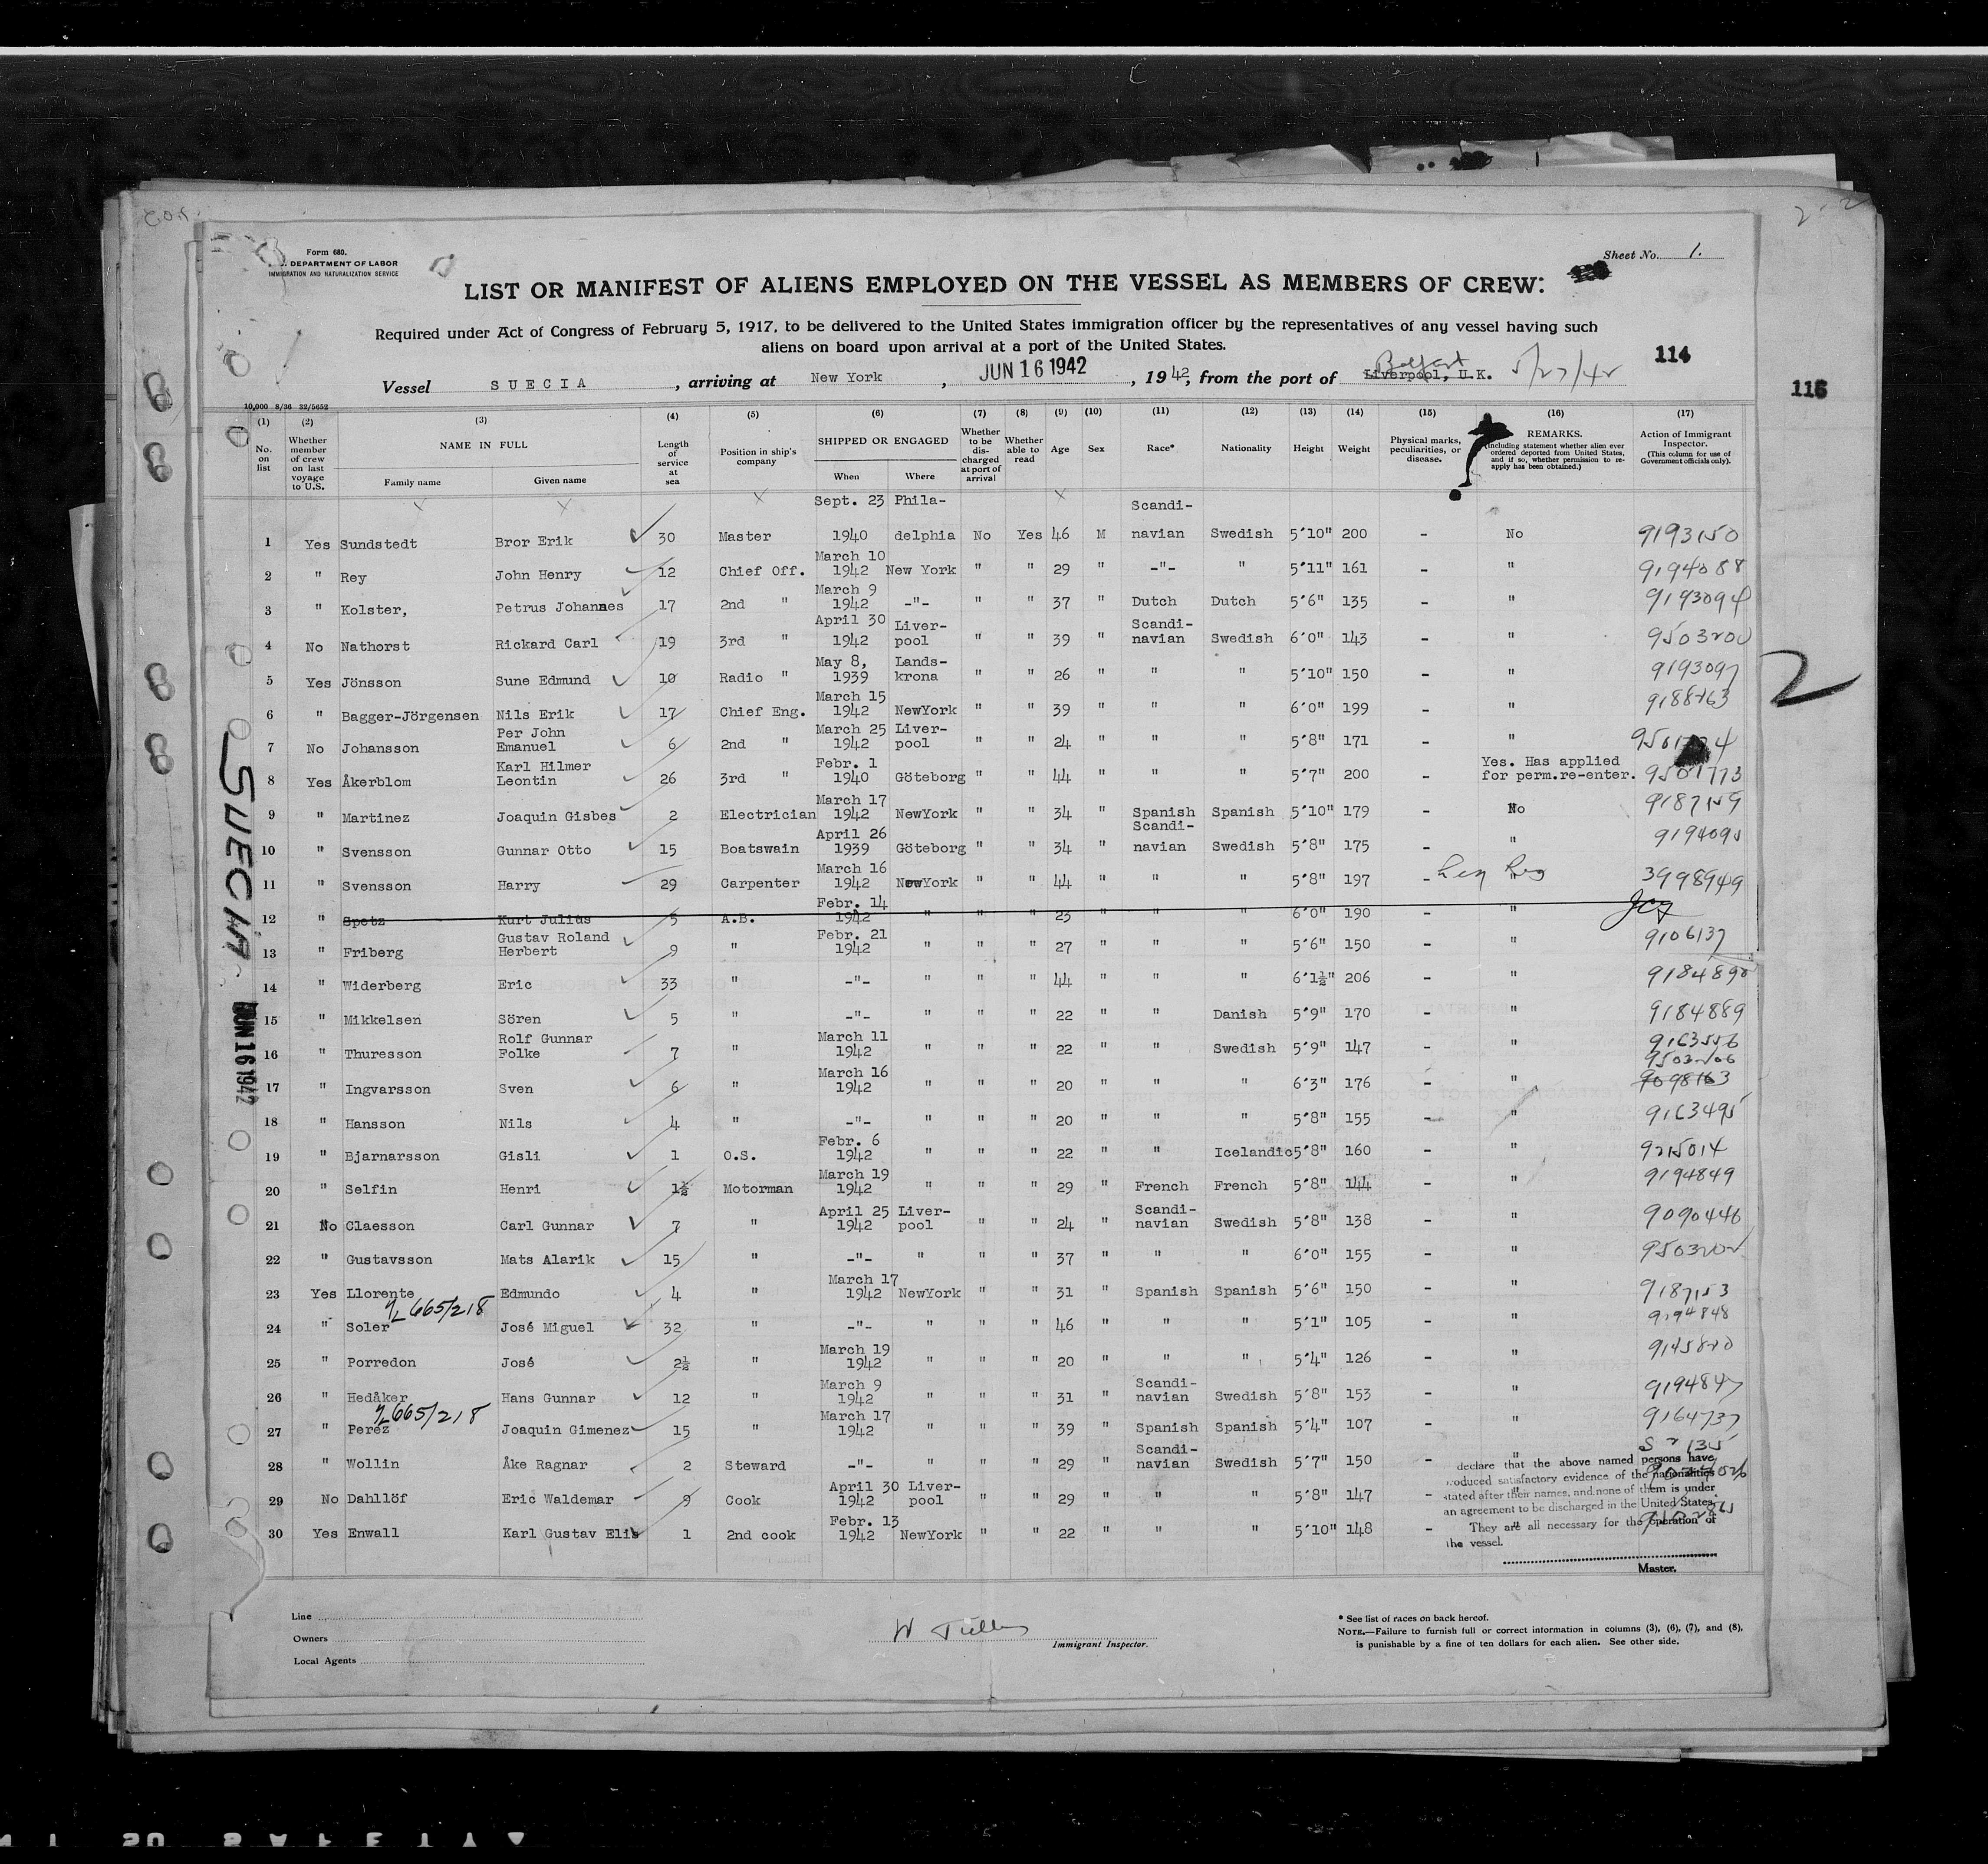 Form 680.
DEPARTMENT OF LABOR
IMMIGRATION AND NATURALIZATION SERVICE
Sheet No. 1.
LIST OR MANIFEST OF ALIENS EMPLOYED ON THE VESSEL AS MEMBERS OF CREW:
Required under Act of Congress of February 5, 1917, to be delivered to the United States immigration officer by the representatives of any vessel having such
aliens on board upon arrival at a port of the United States.
114
116
Vessel SUECIA, arriving at New York, JUN 16 1942, 1942, from the port of Liverpool, U.K. Belfast 5/27/42
10,000 8/36 32/5652
(1) (2) (3) (4) (5) (6) (7) (8) (9) (10) (11) (12) (13) (14) (15) (16) (17)
No. on list
Whether member of crew on last voyage to U.S.
NAME IN FULL
Family name Given name
Length of service at sea
Position in ship's company
SHIPPED OR ENGAGED
When Where
Whether to be discharged at port of arrival
Whether able to read
Age Sex Race* Nationality Height Weight
Physical marks, peculiarities, or disease.
REMARKS.
(Including statement whether alien ever ordered deported from United States, and if so, whether permission to re-apply has been obtained.)
Action of Immigrant Inspector.
(This column for use of Government officials only).
1 Yes Sundstedt Bror Erik 30 Master Sept. 23 1940 Phila-delphia No Yes 46 M Scandi-navian Swedish 5'10" 200 - No 9193150
2 " Rey John Henry 12 Chief Off. March 10 1942 New York " " 29 " -"- " 5'11" 161 - " 9194088
3 " Kolster, Petrus Johannes 17 2nd " March 9 1942 -"- " " 37 " Dutch Dutch 5'6" 135 - " 9193094
4 No Nathorst Rickard Carl 19 3rd " April 30 1942 Liver-pool " " 39 " Scandi-navian Swedish 6'0" 143 - " 9503200
5 Yes Jönsson Sune Edmund 10 Radio " May 8, 1939 Lands-krona " " 26 " " " 5'10" 150 - " 9193097
6 " Bagger-Jörgensen Nils Erik 17 Chief Eng. March 15 1942 NewYork " " 39 " " " 6'0" 199 - " 9188763
7 No Johansson Per John Emanuel 6 2nd " March 25 1942 Liver-pool " " 24 " " " 5'8" 171 - "
8 Yes Åkerblom Karl Hilmer Leontin 26 3rd " Febr. 1 1940 Göteborg " " 44 " " " 5'7" 200 - Yes. Has applied for perm.re-enter. 9501773
9 " Martinez Joaquin Gisbes 2 Electrician March 17 1942 NewYork " " 34 " Spanish Spanish 5'10" 179 - No 9187159
10 " Svensson Gunnar Otto 15 Boatswain April 26 1939 Göteborg " " 34 " Scandi-navian Swedish 5'8" 175 - " 9194095
11 " Svensson Harry 29 Carpenter March 16 1942 NewYork " " 44 " " " 5'8" 197 - 3998949
12 " Spetz Kurt Julius 5 A.B. Febr. 14 1942 " " " 23 " " " 6'0" 190 - "
13 " Friberg Gustav Roland Herbert 9 " Febr. 21 1942 " " " 27 " " " 5'6" 150 - " 9106137
14 " Widerberg Eric 33 " -"- " " " 44 " " " 6'1½" 206 - " 9184890
15 " Mikkelsen Sören 5 " -"- " " " 22 " " Danish 5'9" 170 - " 9184889
16 " Thuresson Rolf Gunnar Folke 7 " March 11 1942 " " " 22 " " Swedish 5'9" 147 - " 9163556
17 " Ingvarsson Sven 6 " March 16 1942 " " " 20 " " " 6'3" 176 - " 9098163
18 " Hansson Nils 4 " -"- " " " 20 " " " 5'8" 155 - " 9163495
19 " Bjarnarsson Gisli 1 O.S. Febr. 6 1942 " " " 22 " " Icelandic 5'8" 160 - " 9215014
20 " Selfin Henri 1½ Motorman March 19 1942 " " " 29 " French French 5'8" 144 - " 9194849
21 No Claesson Carl Gunnar 7 " April 25 1942 Liver-pool " " 24 " Scandi-navian Swedish 5'8" 138 - " 9090446
22 " Gustavsson Mats Alarik 15 " -"- " " " 37 " " " 6'0" 155 - " 9503202
23 Yes Llorente Edmundo 4 " March 17 1942 NewYork " " 31 " Spanish Spanish 5'6" 150 - " 9187153
665/218
24 " Soler José Miguel 32 " -"- " " " 46 " " " 5'1" 105 - " 9194848
25 " Porredon José 2½ " March 19 1942 " " " 20 " " " 5'4" 126 - " 9145820
26 " Hedåker Hans Gunnar 12 " March 9 1942 " " " 31 " Scandi-navian Swedish 5'8" 153 - " 9194847
665/218
27 " Perez Joaquin Gimenez 15 " March 17 1942 " " " 39 " Spanish Spanish 5'4" 107 - " 9164737
28 " Wollin Åke Ragnar 2 Steward -"- " " " 29 " Scandi-navian Swedish 5'7" 150 - "
29 No Dahllöf Eric Waldemar 9 Cook April 30 1942 Liver-pool " " 29 " " " 5'8" 147 - "
30 Yes Enwall Karl Gustav Elis 1 2nd cook Febr. 13 1942 NewYork " " 22 " " " 5'10" 148 - "
declare that the above named persons have
produced satisfactory evidence of the nationalities
stated after their names, and none of them is under
an agreement to be discharged in the United States.
They are all necessary for the operation of
the vessel.
Master.
SUECIA
JUN 16 1942
2
Line
Owners
Local Agents
Immigrant Inspector.
* See list of races on back hereof.
NOTE.—Failure to furnish full or correct information in columns (3), (6), (7), and (8),
is punishable by a fine of ten dollars for each alien. See other side.